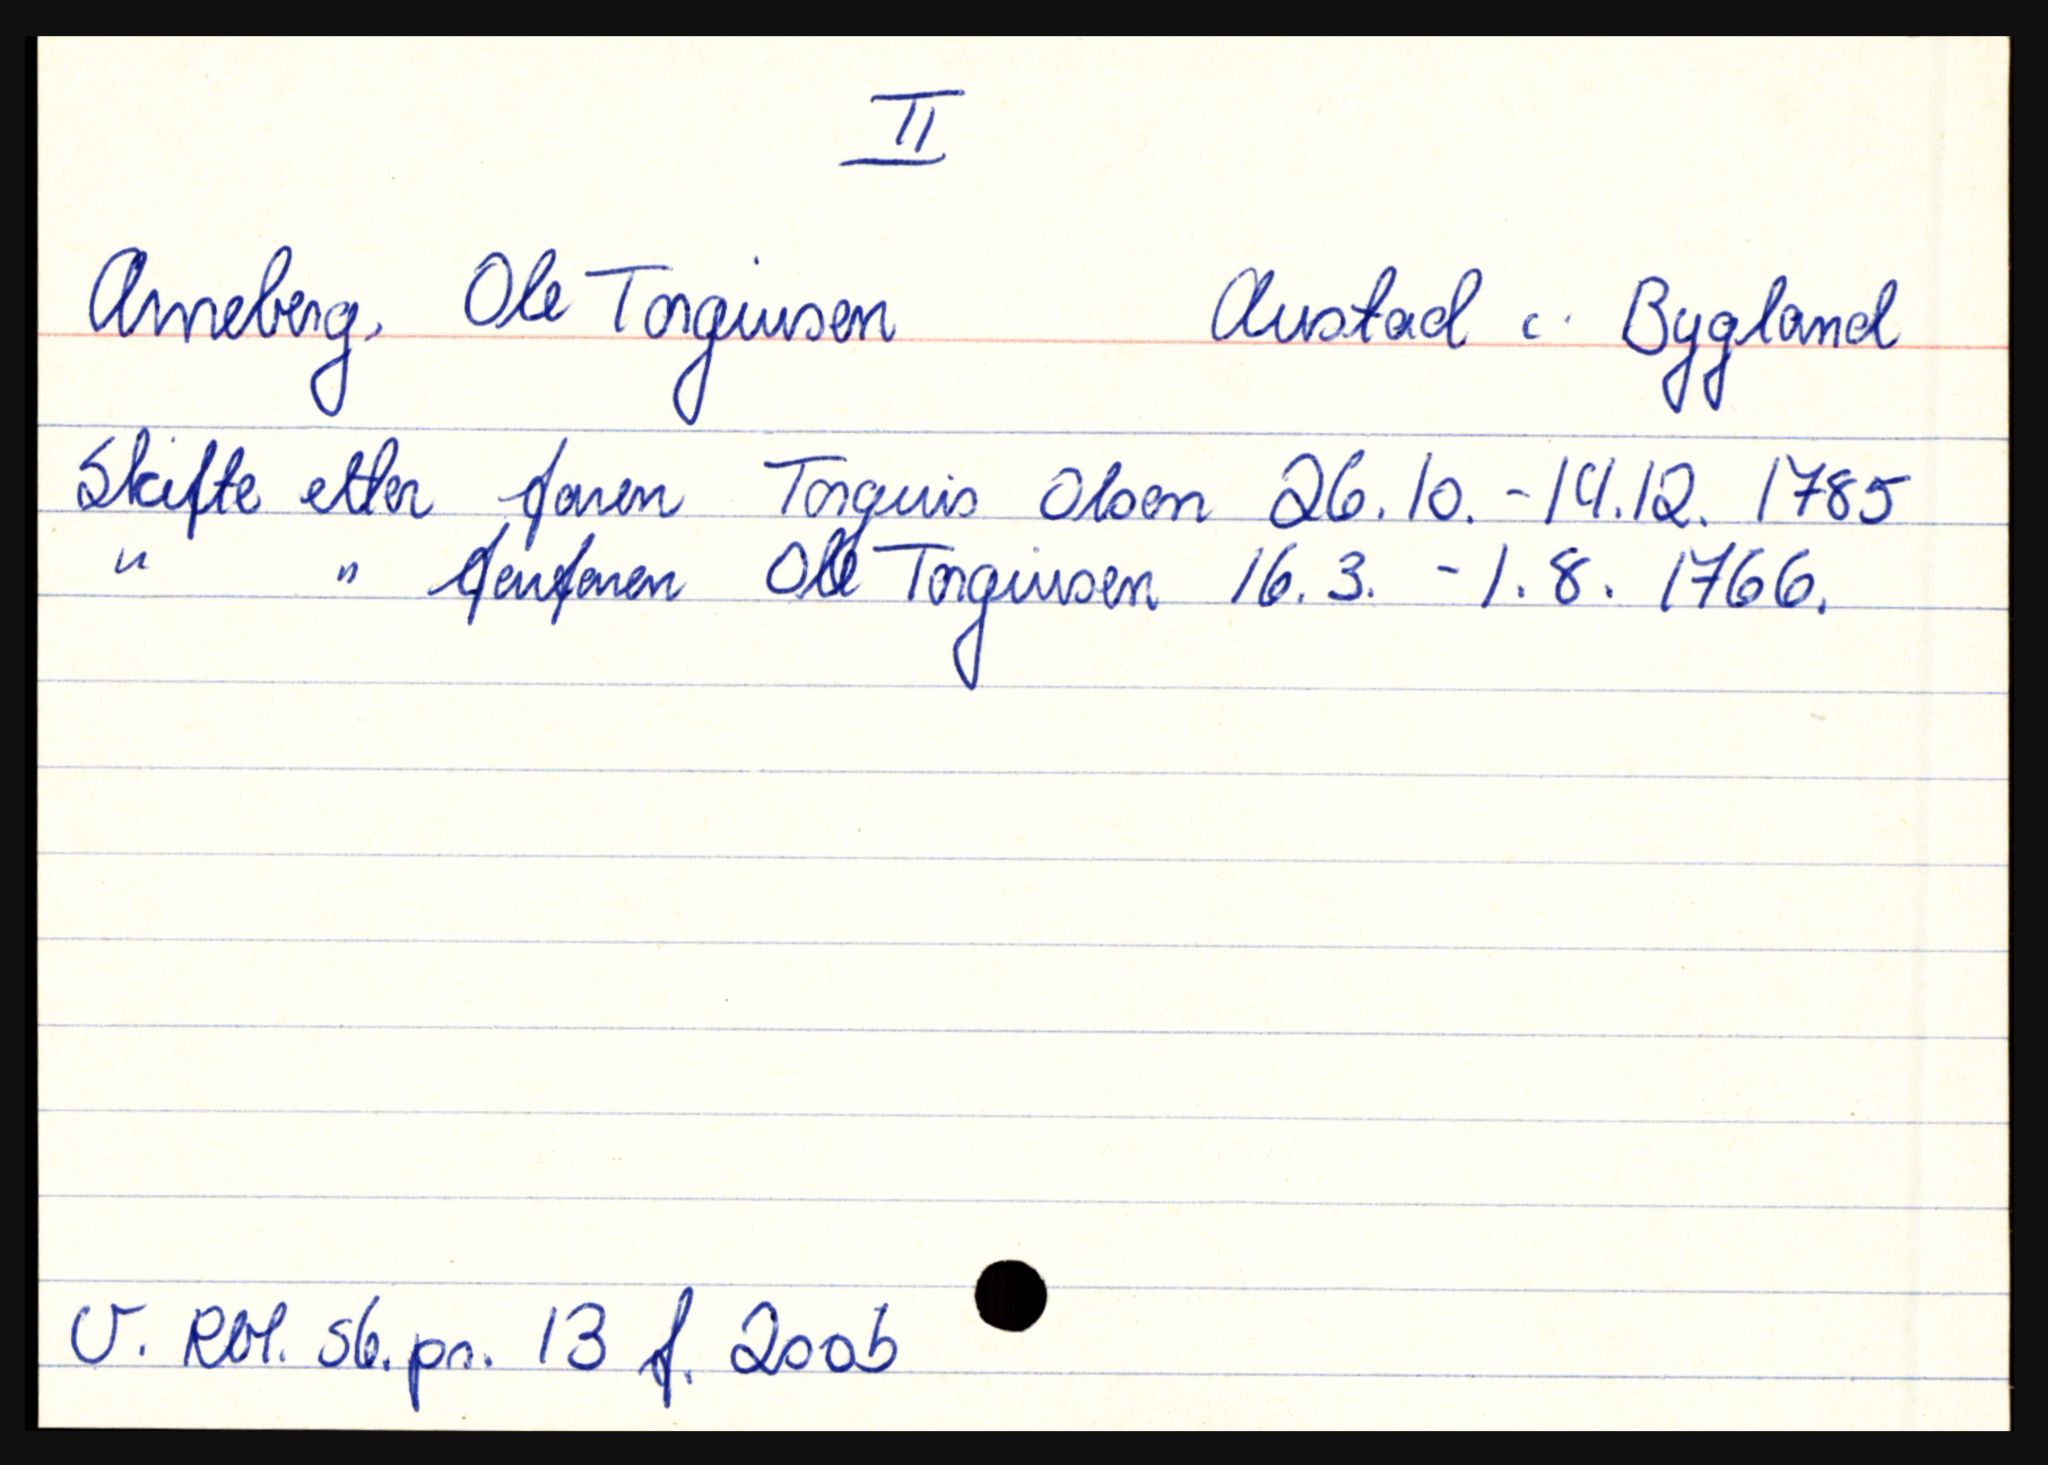 II
Arneberg, Ole Torgiusen Austad i Bygland
Skifte etter faren Torguis Olsen 26.10. - 14.12. 1785
" " farfaren Ole Torgiusen 16.3. - 1.8. 1766.
V. Rbl. sb. pr. 13 f. 200b